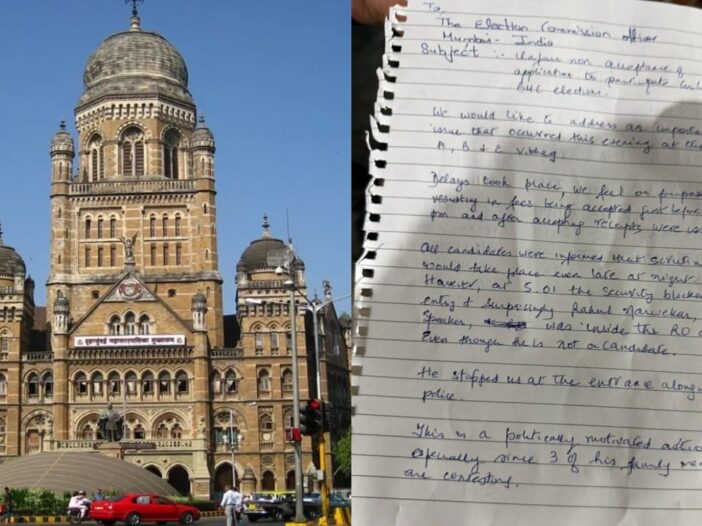 बृहन्मुंबई महानगरपालिका मुख्यालय
To,
The Election Commission officer
Mumbai - India
Subject :- Unfair non acceptance of
application to participate in
BMC election.
We would like to address an importa
issue that occurred this evening at the
A, B & E Vibhag.
Delays took place, we feel on purpo
resulting in fees being accepted just before
pm and after accepting receipts were
All candidates were informed that scrutin
would take place even late at night
However, at 5.01 the security blocke
entry & surprisingly Rahul Narwekar,
speaker, was inside the RO
Even though he is not a candidate.
He stopped us at the entrance along
police.
This is a politically motivated actio
especially since 3 of his family me
are contesting.